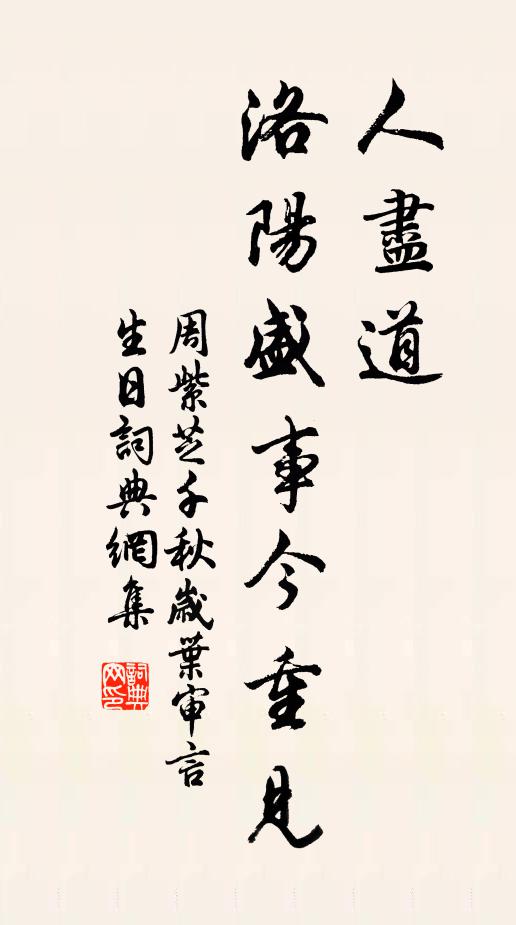 人盡道
洛陽盛事今重見
周紫芝千秋歲葉审言
生日詞典網集
詞典网印